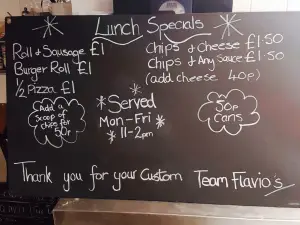 Lunch Specials
Roll & Sausage £1
Burger Roll £1
1/2 Pizza £1
Chips & Cheese £1.50
Chips & Any Sauce £1.50
(add cheese 40p)
Add a
Scoop of
chips for
50p
* Served *
Mon-Fri
* 11-2pm *
50p
Cans
Thank you for your Custom Team Flavio's